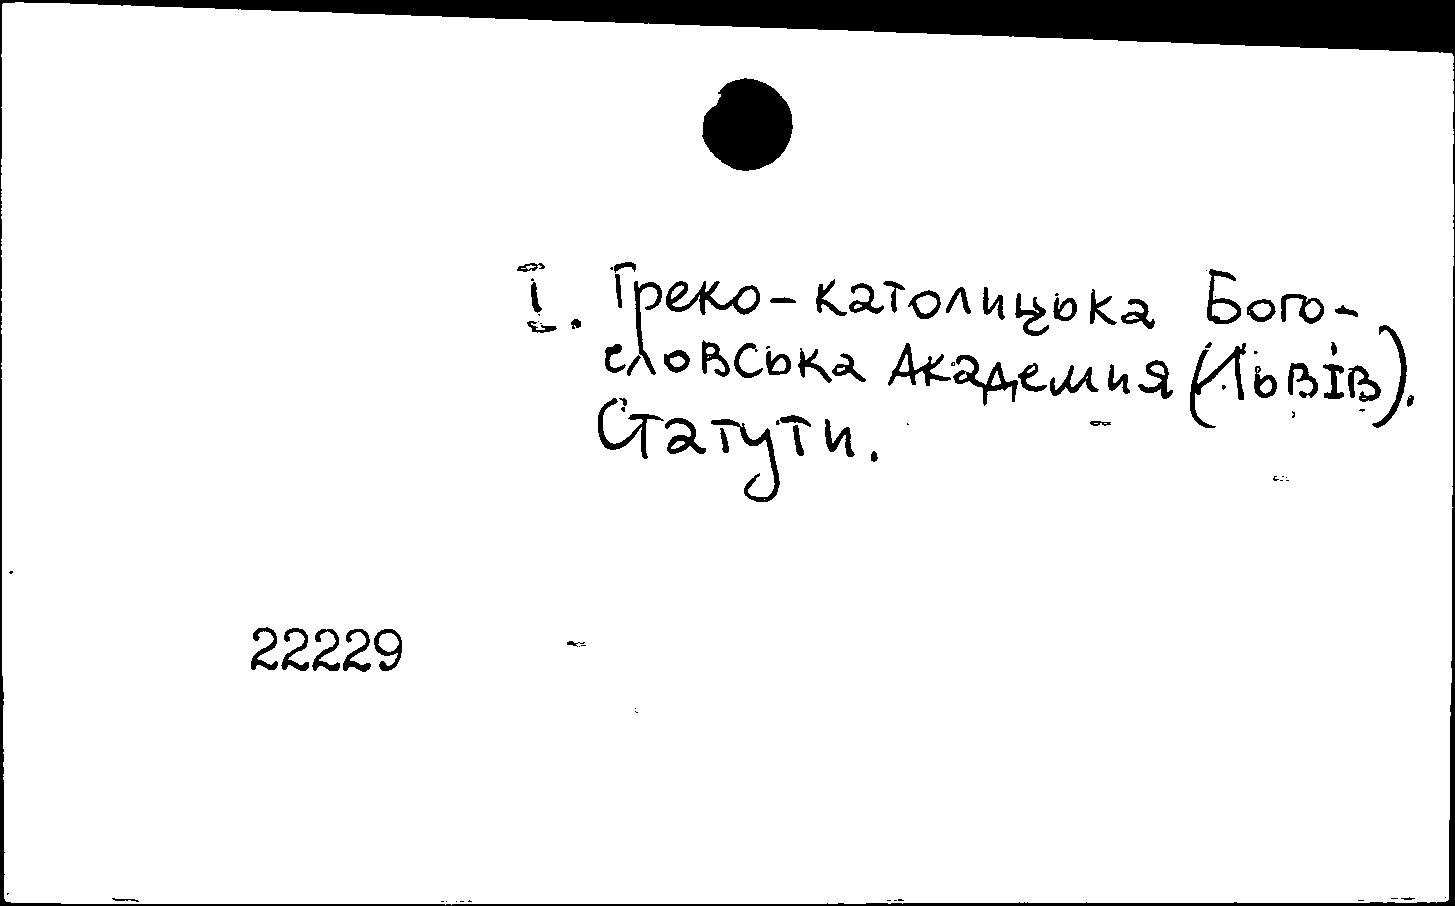 I. Греко-католицька Бого-
словська Академия (Львів).
Статути.
22229